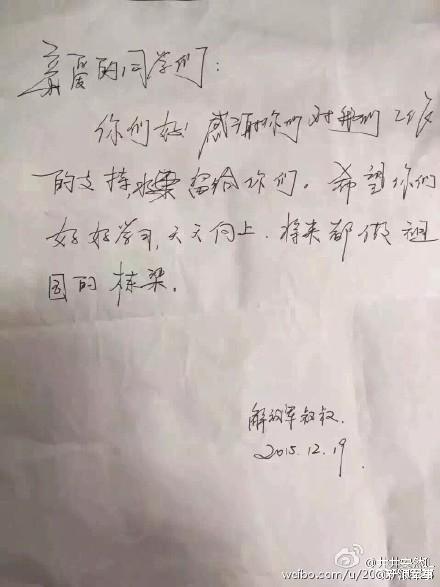 亲爱的同学们:
你们好!感谢你们对我们工作
的支持,水果留给你们。希望你们
好好学习,天天向上.将来都做祖
国的栋梁。
解放军叔叔.
2015.12.19.
weibo.com/u/20